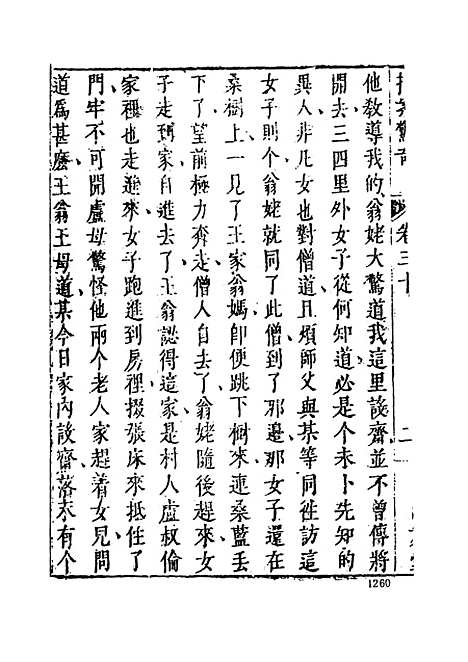 拍案驚奇 卷三十 二
他教導我的翁姥大驚道我這里設齋並不曾傳將
開去三四里外女子從何知道必是个未卜先知的
異人非凡女也對僧道且煩師父與某等同徃訪這
女子則个翁姥就同了此僧到了那邊那女子還在
桑樹上一見了王家翁媽即便跳下樹來連桑藍丟
下了望前極力奔走僧人自去了翁姥隨後趕來女
子走到家自進去了王翁認得這家是村人盧叔倫
家裡也走進來女子跑進到房裡掇張床來抵住了
門牢不可開盧母驚怪他兩个老人家趕着女兒問
道爲甚麽王翁王母道某今日家內設齋落末有个
1260